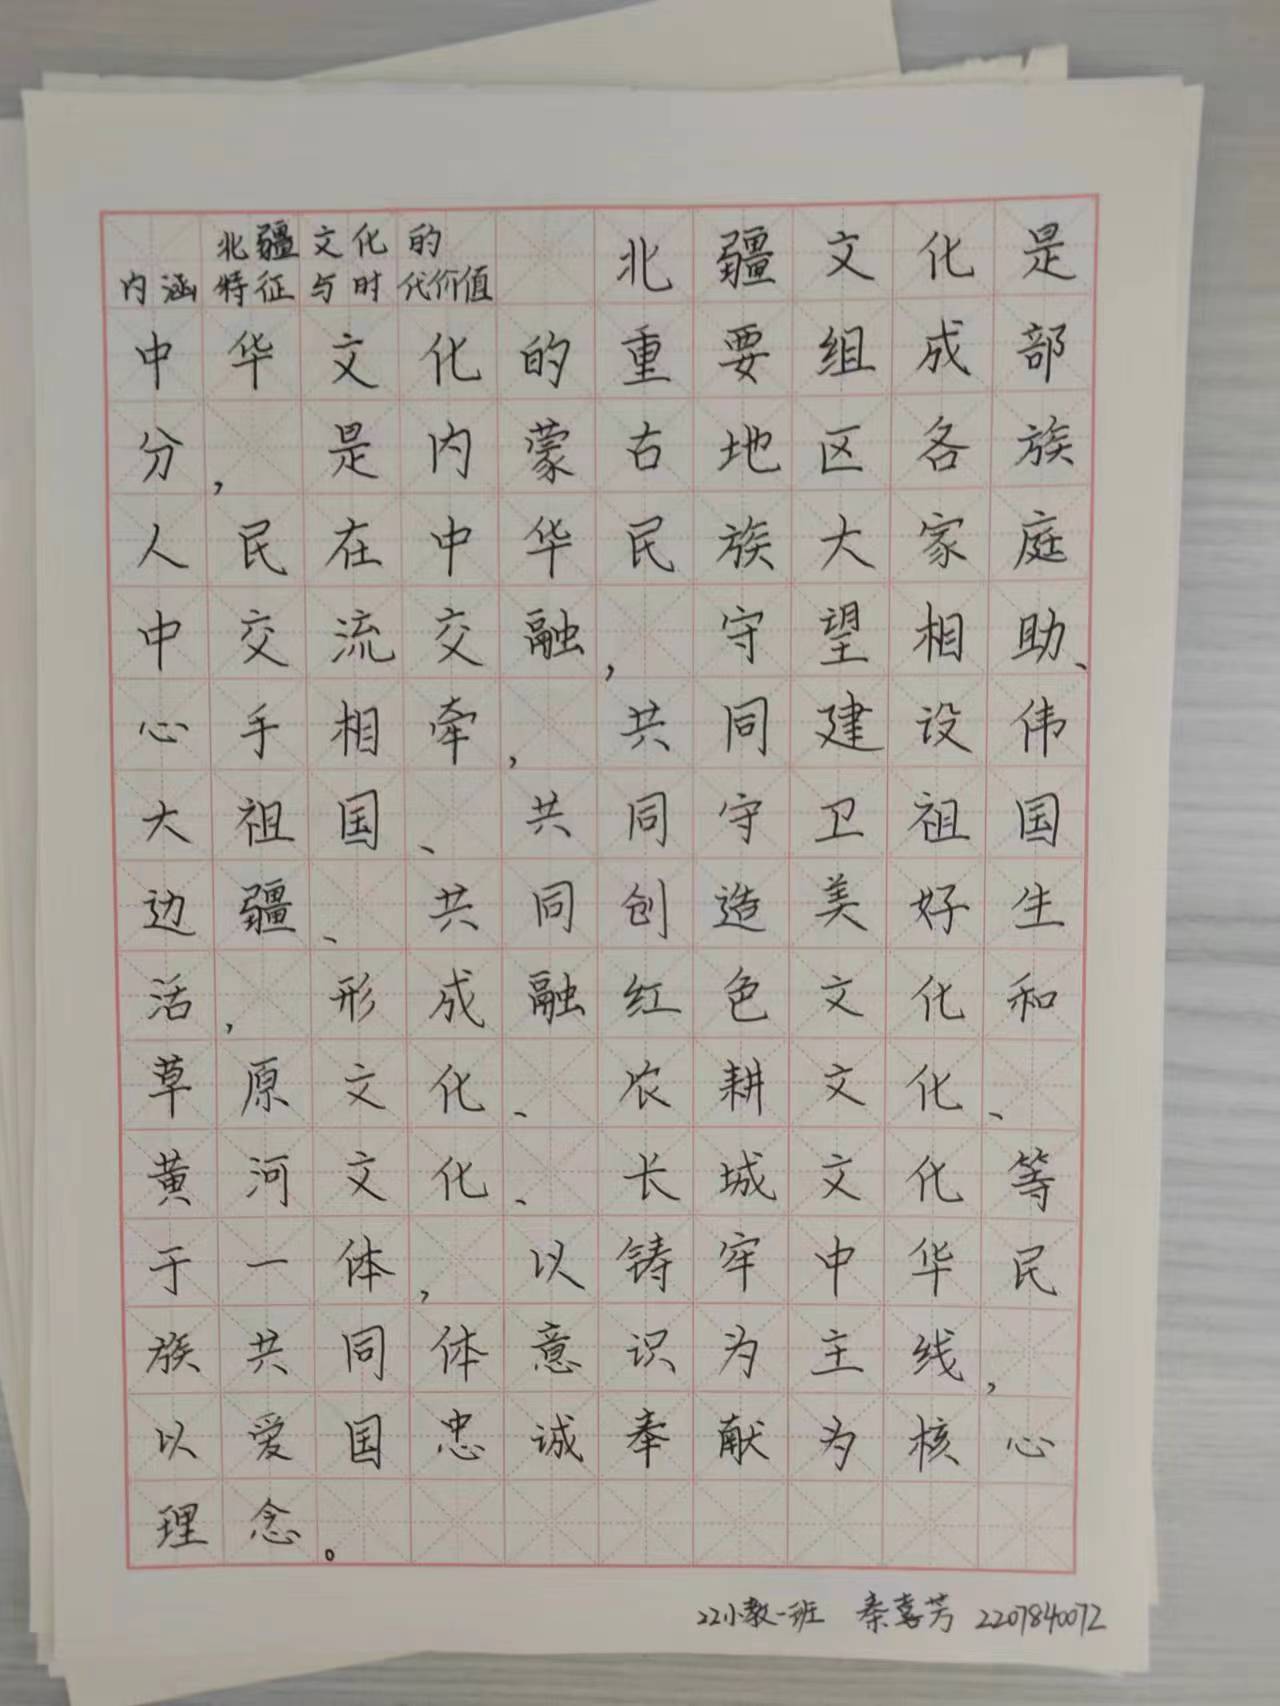 北疆文化的
内涵特征与时代价值
北疆文化是
中华文化的重要组成部
分，是内蒙古地区各族
人民在中华民族大家庭
中交流交融，守望相助、
心手相牵，共同建设伟
大祖国、共同守卫祖国
边疆、共同创造美好生
活，形成融红色文化和
草原文化、农耕文化、
黄河文化、长城文化等
于一体，以铸牢中华民
族共同体意识为主线，
以爱国忠诚奉献为核心
理念。
22小教一班 秦喜芳 2207840072